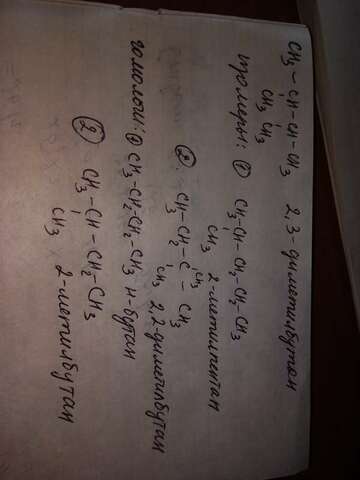 CH3 – CH – CH – CH3 2,3-диметилбутан
CH3 CH3
изомеры: ① CH3-CH-CH2-CH2-CH3
CH3 2-метилпентан
CH3
②. CH3-CH2-C-CH3
CH3 2,2-диметилбутан
гомологи: ① CH3-CH2-CH2-CH3 н-бутан
② CH3-CH-CH2-CH3
CH3 2-метилбутан